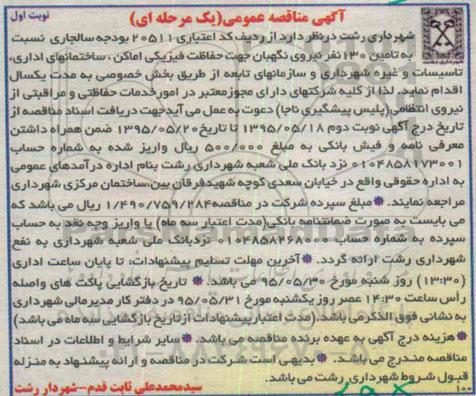 آگهی مناقصه عمومی(یک مرحله ای)
نوبت اول
شهرداری رشت درنظر دارد از ردیف کد اعتباری ۲۰۵۱۱ بودجه سالجاری نسبت
به تامین ۱۳۰نفر نیروی نگهبان جهت حفاظت فیزیکی اماکن ، ساختمانهای اداری،
تاسیسات و غیره شهرداری و سازمانهای تابعه از طریق بخش خصوصی به مدت یکسال
اقدام نماید. لذا از کلیه شرکتهای دارای مجوزمعتبر در امورخدمات حفاظتی و مراقبتی از
نیروی انتظامی(پلیس پیشگیری ناجا) دعوت به عمل می آیدجهت دریافت اسناد مناقصه از
تاریخ درج آگهی نوبت دوم ۱۳۹۵/۰۵/۱۸ تا تاریخ۱۳۹۵/۰۵/۲۰ ضمن همراه داشتن
معرفی نامه و فیش بانکی به مبلغ ۵۰۰/۰۰۰ ریال واریز شده به شماره حساب
۰۱۰۴۸۵۸۱۷۳۰۰۱ نزد بانک ملی شعبه شهرداری رشت بنام اداره درآمدهای عمومی
به اداره حقوقی واقع در خیابان سعدی کوچه شهیدفرقان بین،ساختمان مرکزی شهرداری
مراجعه نمایند. * مبلغ سپرده شرکت در مناقصه۱/۴۹۰/۷۵۹/۲۸۴ ریال می باشد که
می بایست به صورت ضمانتنامه بانکی(مدت اعتبار سه ماه) یا واریز وجه نقد به حساب
سپرده به شماره حساب ۰۱۰۴۸۵۸۲۶۸۰۰۰ نزدبانک ملی شعبه شهرداری به نفع
شهرداری رشت ارائه گردد. * آخرین مهلت تسلیم پیشنهادات: تا پایان ساعت اداری
(۱۳:۳۰) روز شنبه مورخ ۹۵/۰۵/۳۰ می باشد. * تاریخ بازگشایی پاکت های واصله
رأس ساعت ۱۴:۳۰ عصر روز یکشنبه مورخ ۹۵/۰۵/۳۱ در دفتر کار مدیرمالی شهرداری
به نشانی فوق الذکر می باشد.(مدت اعتبار پیشنهادات از تاریخ بازگشایی سه ماه می باشد)
*هزینه درج آگهی به عهده برنده مناقصه می باشد. * سایر شرایط و اطلاعات در اسناد
مناقصه مندرج می باشد. * بدیهی است شرکت در مناقصه و ارائه پیشنهاد به منزله
قبول شروط شهرداری رشت می باشد.
سیدمحمدعلی ثابت قدم–شهردار رشت
۱۰۰